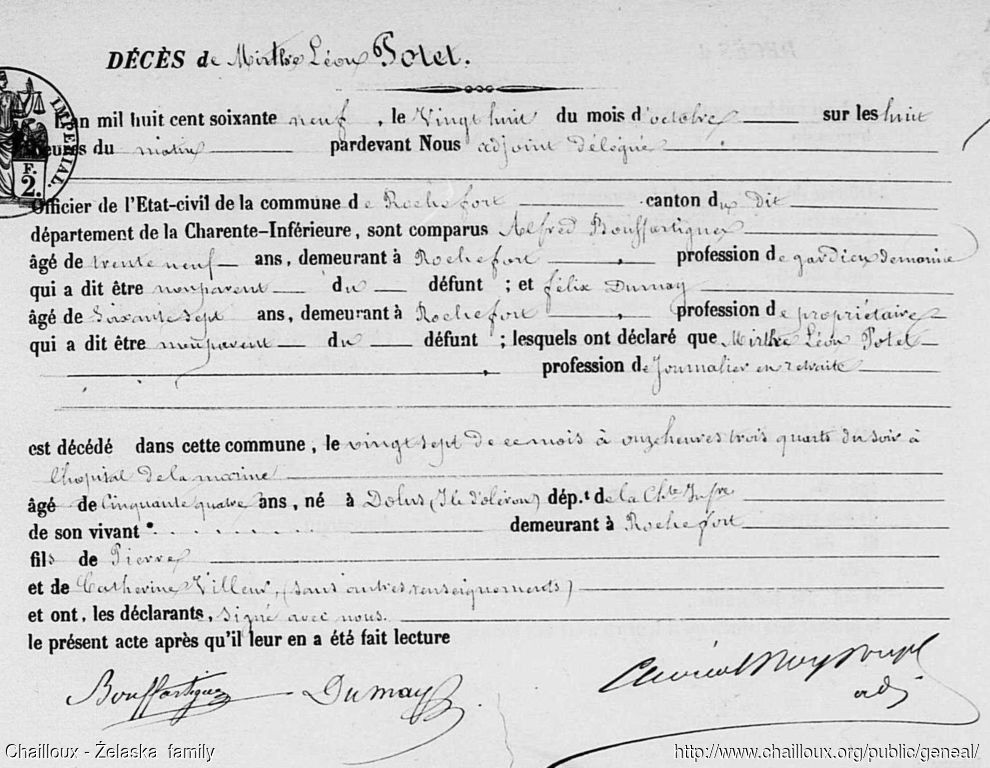 DÉCÈS de Mirthe Léon Potel.
L'an mil huit cent soixante neuf, le Vingt huit du mois d'octobre sur les huit
heures du matin pardevant Nous adjoint délégué
IMPERIAL.
F.
2.
Officier de l'Etat-civil de la commune de Rochefort canton du dit
département de la Charente-Inférieure, sont comparus Alfred Bouffartigue
âgé de trente neuf ans, demeurant à Rochefort, profession de gardien de marine
qui a dit être non parent du défunt; et félix Dumay
âgé de Soixante sept ans, demeurant à Rochefort, profession de propriétaire
qui a dit être non parent du défunt; lesquels ont déclaré que Mirthe Léon Potel
, profession de Journalier en retraite
est décédé dans cette commune, le vingt sept de ce mois à onze heures trois quarts du soir à
l'hopital de la marine
âgé de Cinquante quatre ans, né à Dolus (Ile d'oléron) dép.t de la Chte Infre
de son vivant demeurant à Rochefort
fils de Pierre
et de Catherine Villeur, (sans autres renseignements)
et ont, les déclarants, signé avec nous.
le présent acte après qu'il leur en a été fait lecture
Bouffartigue Dumay
adj
Chailloux - Żelaska family http://www.chailloux.org/public/geneal/